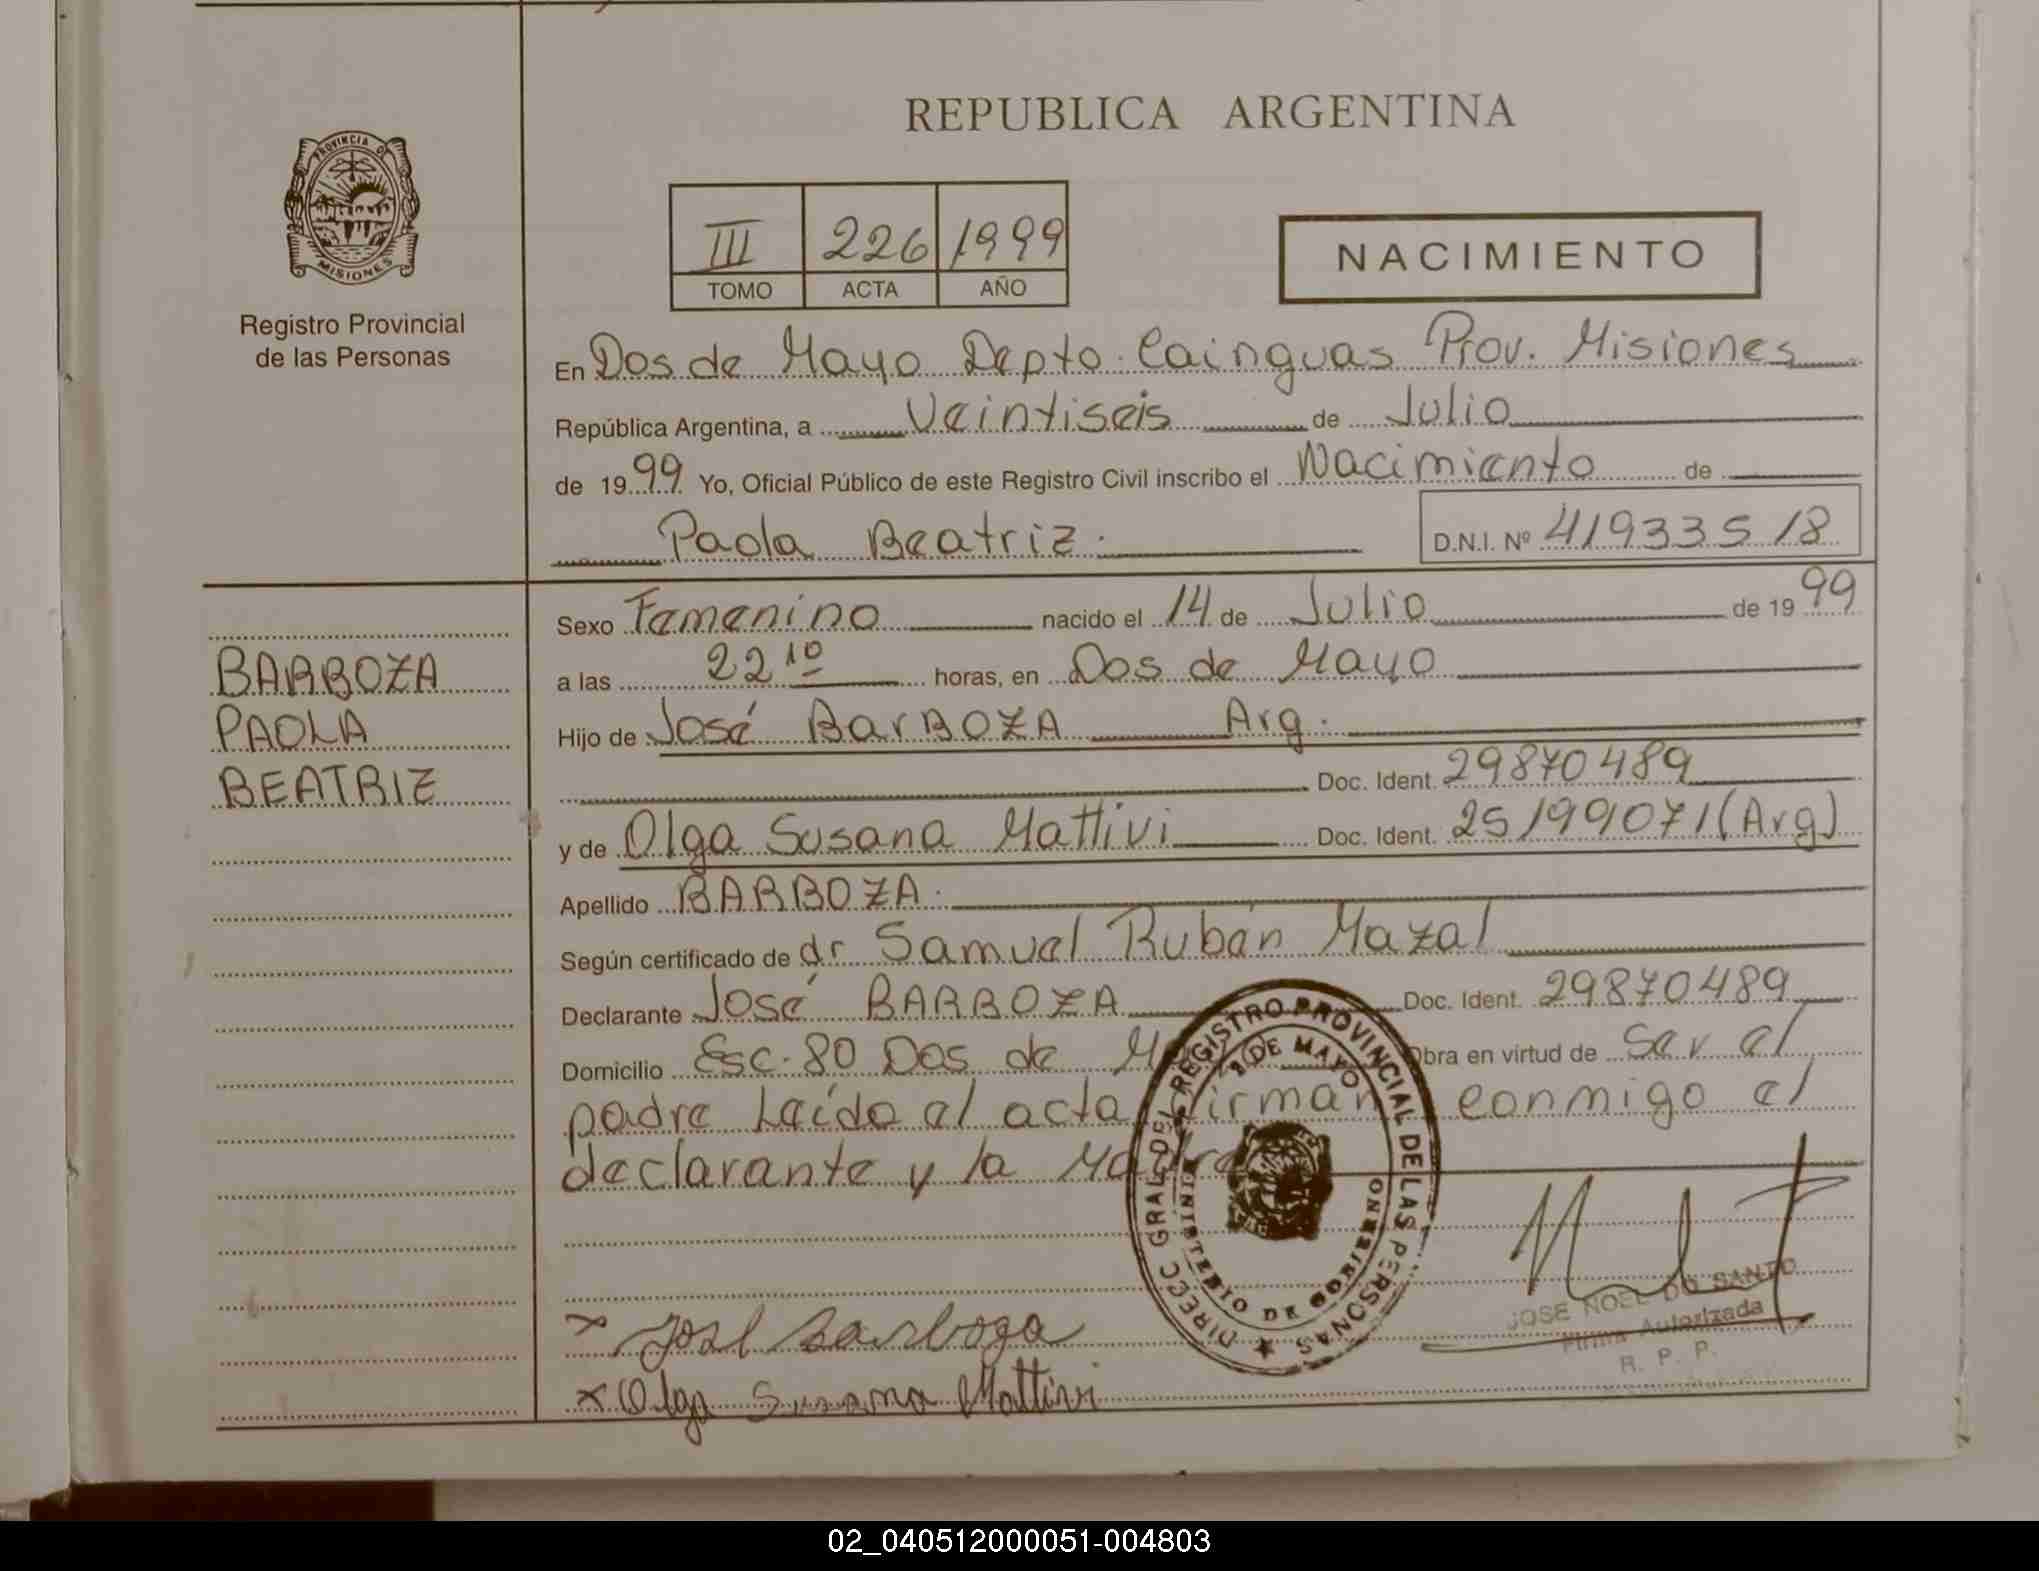 REPUBLICA ARGENTINA
PROVINCIA D
MISIONES
Registro Provincial
de las Personas
III 226 1999
TOMO ACTA AÑO
NACIMIENTO
En Dos de Mayo Depto. Cainguas Prov. Misiones
República Argentina, a Veintiseis de Julio
de 1999 Yo, Oficial Público de este Registro Civil inscribo el Nacimiento de
Paola Beatriz.
D.N.I. Nº 41933518
BARBOZA
PAOLA
BEATRIZ
Sexo Femenino nacido el 14 de Julio de 1999
a las 22 10 horas, en Dos de Mayo
Hijo de José BarBOZA Arg.
Doc. Ident. 29870489
y de Olga Susana Mattivi Doc. Ident. 25199071 (Arg)
Apellido BARBOZA.
Según certificado de dr Samuel Rubén Mazal
Declarante José BARBOZA Doc. Ident. 29870489
Domicilio Esc. 80 Dos de Obra en virtud de Ser el
padre Leída el acta firman conmigo el
declarante y la Madre
DIREC GRAL DEL REGISTRO PROVINCIAL DE LAS PERSONAS
2 DE MAYO
MINISTERIO DE GOBIERNO
José Barboza
x Olga Susana Mattivi
JOSE NOEL DO SANTO
Firma Autorizada
R. P. P.
02_040512000051-004803